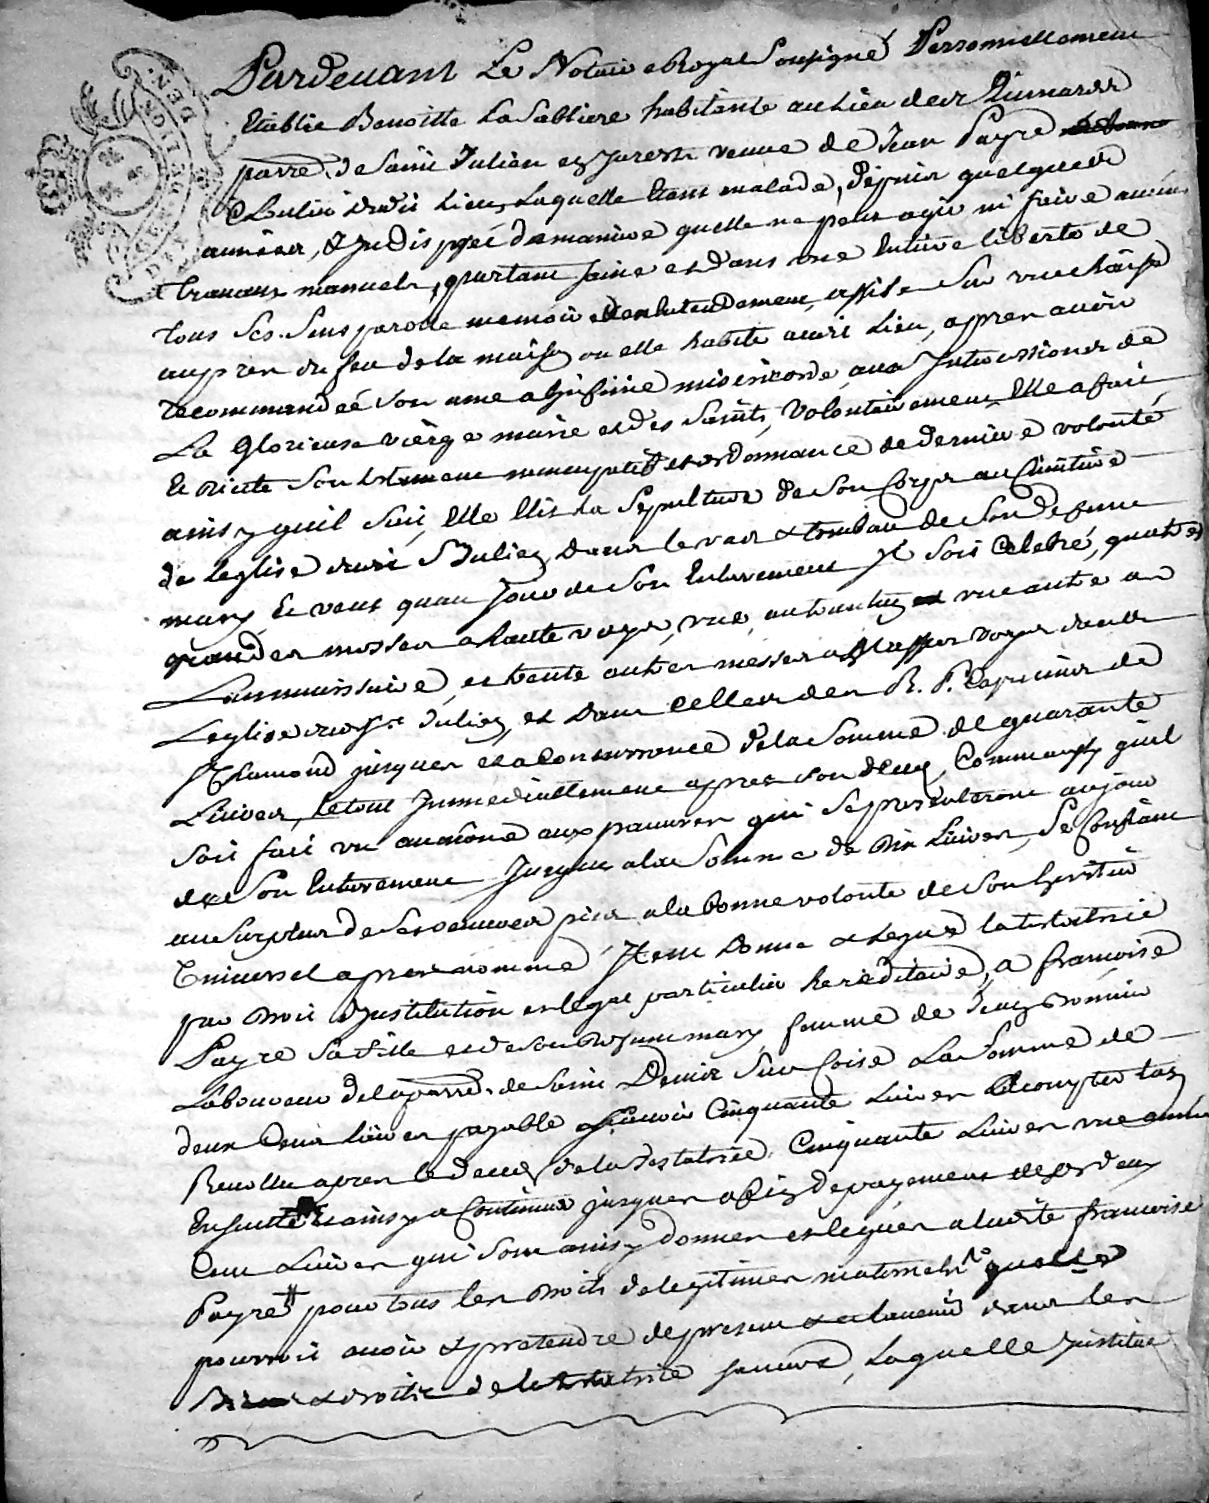 Pardevant Le Notaire Royal Soussigné Personnellement
Etablie Benoitte La Sabliere habitante au Lieu des
parre. de Saint Julien en Jarest veuve de Jean Payre
dudit Lieu, Laquelle etant malade, depuis quelques
années, & Indisposée de maniere quelle ne peut agir ni faire aucuns
travaux manuels, pourtant saine et dans une Entiere liberté de
tous ses sens parolle memoire et entendement, assise sur une chaise
aupres du feu de la maison ou elle habite audit Lieu, apres avoir
recommandeé son ame a infinie misericorde, aux Intercessions de
La Glorieuse vierge marie et des saints, volontairement Elle a fait
Et dicté son testament nuncupatif et ordonnance de derniere volonté
ainsy quil suit, Elle Elit la sepulture de son corps au cimitiere
de leglise dudit St Julien, dans le vas & tombau de son defunt
mary, Et veut quau Jour de son Enterrement Il soit celebré, quatre
grandes messes a haute voye, une autant une autre au
Lanniversaire, et trente autres messes a basse voye dans
Leglise dudit St Julien, et dans celles des R. P. Capucins de
St Chamond jusques et a concurrence de la somme de quarante
Livres, le tout Immediattement apres son deces, Comme aussy quil
soit fait une aumône aux pauvres qui se presenteront au jour
de son Enterrement Jusques a la somme de dix Livres, se confiant
au surplus de ses oeuvres pies a la bonne volonté de son heritier
Universel apres nommé Item donne & legue la testatrice
par droit dinstitution et legat particulier hereditaire, a françoise
Payre sa fille et de son defunt mary, femme de Jean
Laboureur de la parre. de Saint Denis Sur Coise La somme de
deux Cent livres payable scavoir Cinquante Livres a compter
apres le deces de la testatrice, Cinquante Livres une année
Ensuitte Et ainsy a Continuer jusques a fin de payement desdits deux
Cent Livres qui sont ainsy donnés et legués a ladite francoise
Payre pour tous les droits de legitimes maternels quelle
pourroit avoir & pretendre de present & a lavenir dans les
Biens & droits de la testatrice sa mere, Laquelle Institue